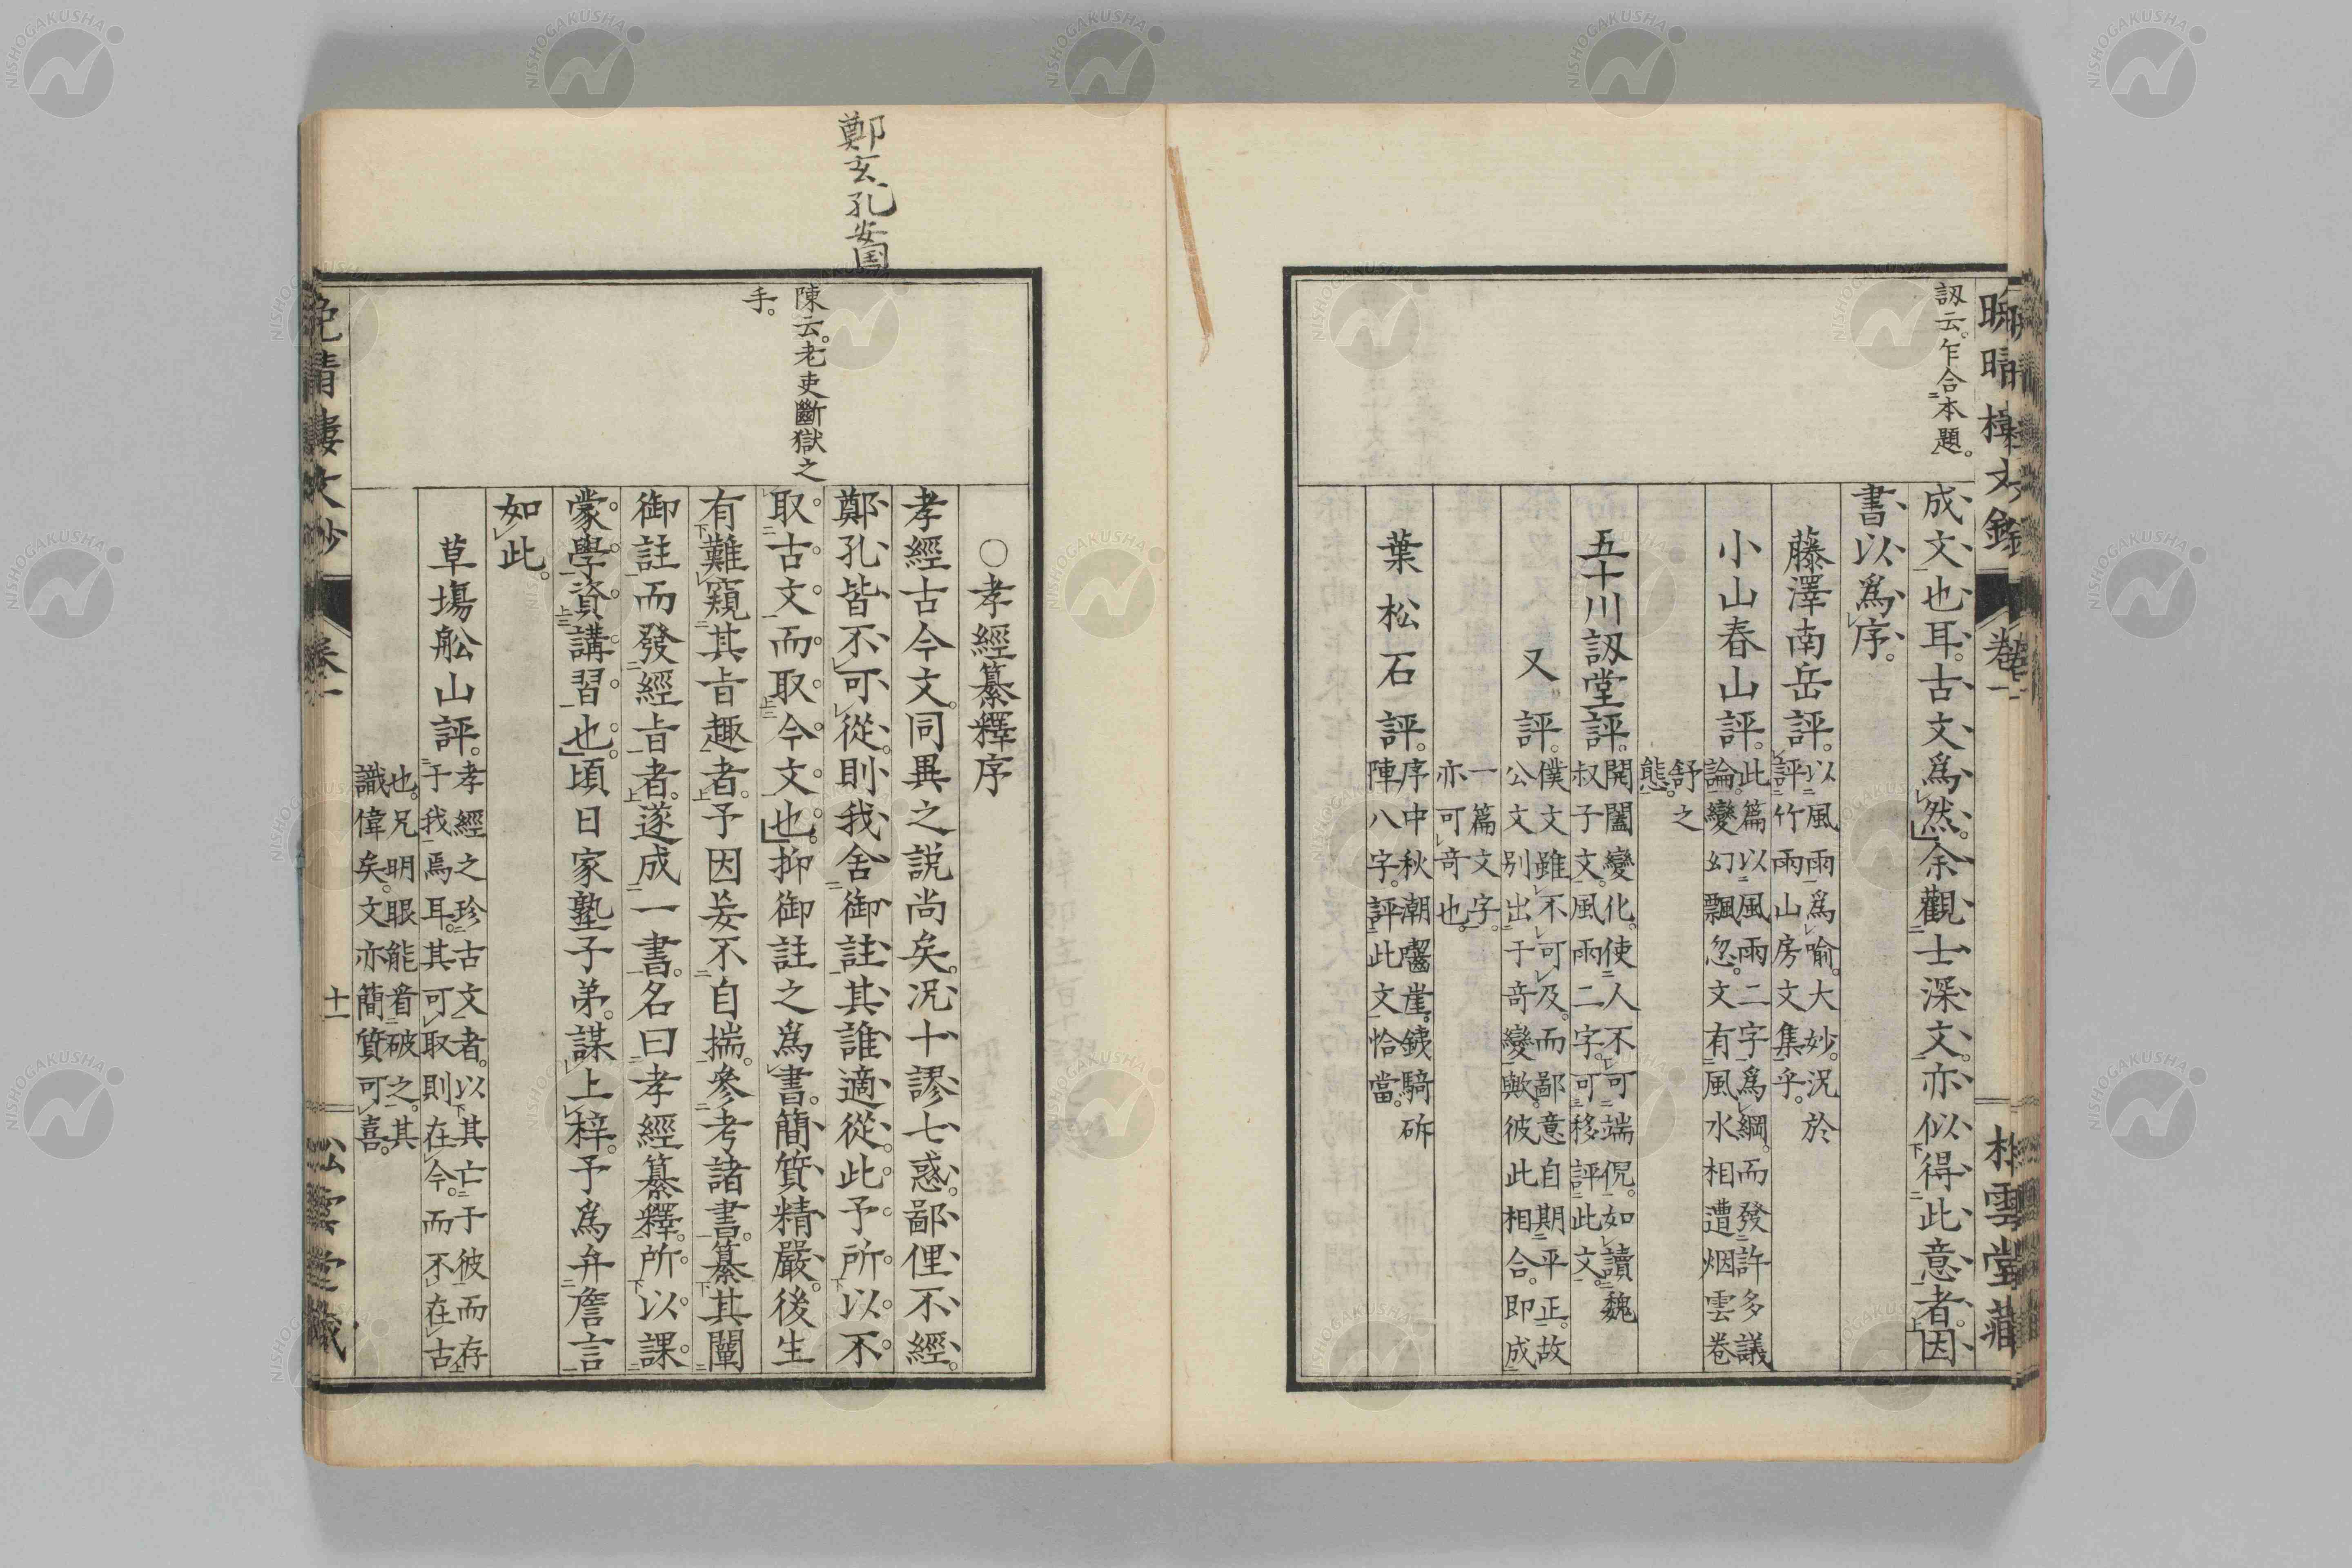 訒云。乍合本題。
成文也耳。古文爲然。余觀士深文。亦似得此意者。因
書以爲序。
藤澤南岳評。以風雨爲喻。大妙。況於
評竹雨山房文集乎。
小山春山評。此篇以風雨二字爲綱。而發許多議
論。變幻飄忽。文有風水相遭烟雲卷
舒之
態。
五十川訒堂評。開闔變化。使人不可端倪。如讀魏
叔子文。風雨二字。可移評此文。
又評。僕文雖不可及。而鄙意自期平正。故
公文別出于奇變歟。彼此相合。即成
一篇文字。
亦可奇也。
葉松石評。序中秋潮齧崖。鐵騎斫
陣八字。評此文恰當。
鄭玄孔安国
陳云。老吏斷獄之
手。
○孝經纂釋序
孝經古今文。同異之説尚矣。況十謬七惑。鄙俚不經。
鄭孔皆不可從。則我舍御註。其誰適從。此予所以不
取古文而取今文也。抑御註之爲書。簡質精嚴。後生
有難窺其旨趣者。予因妄不自揣。參考諸書。纂其闡
御註而發經旨者。遂成一書。名曰孝經纂釋。所以課
蒙學資講習也。頃日家塾子弟。謀上梓。予爲弁詹言
如此。
草塲舩山評。孝經之珍古文者。以其亡于彼而存
于我焉耳。其可取則在今。而不在古
也。兄明眼能看破之。其
識偉矣。文亦簡質可喜。
晩晴樓文鈔
卷一
十一
松雲堂藏